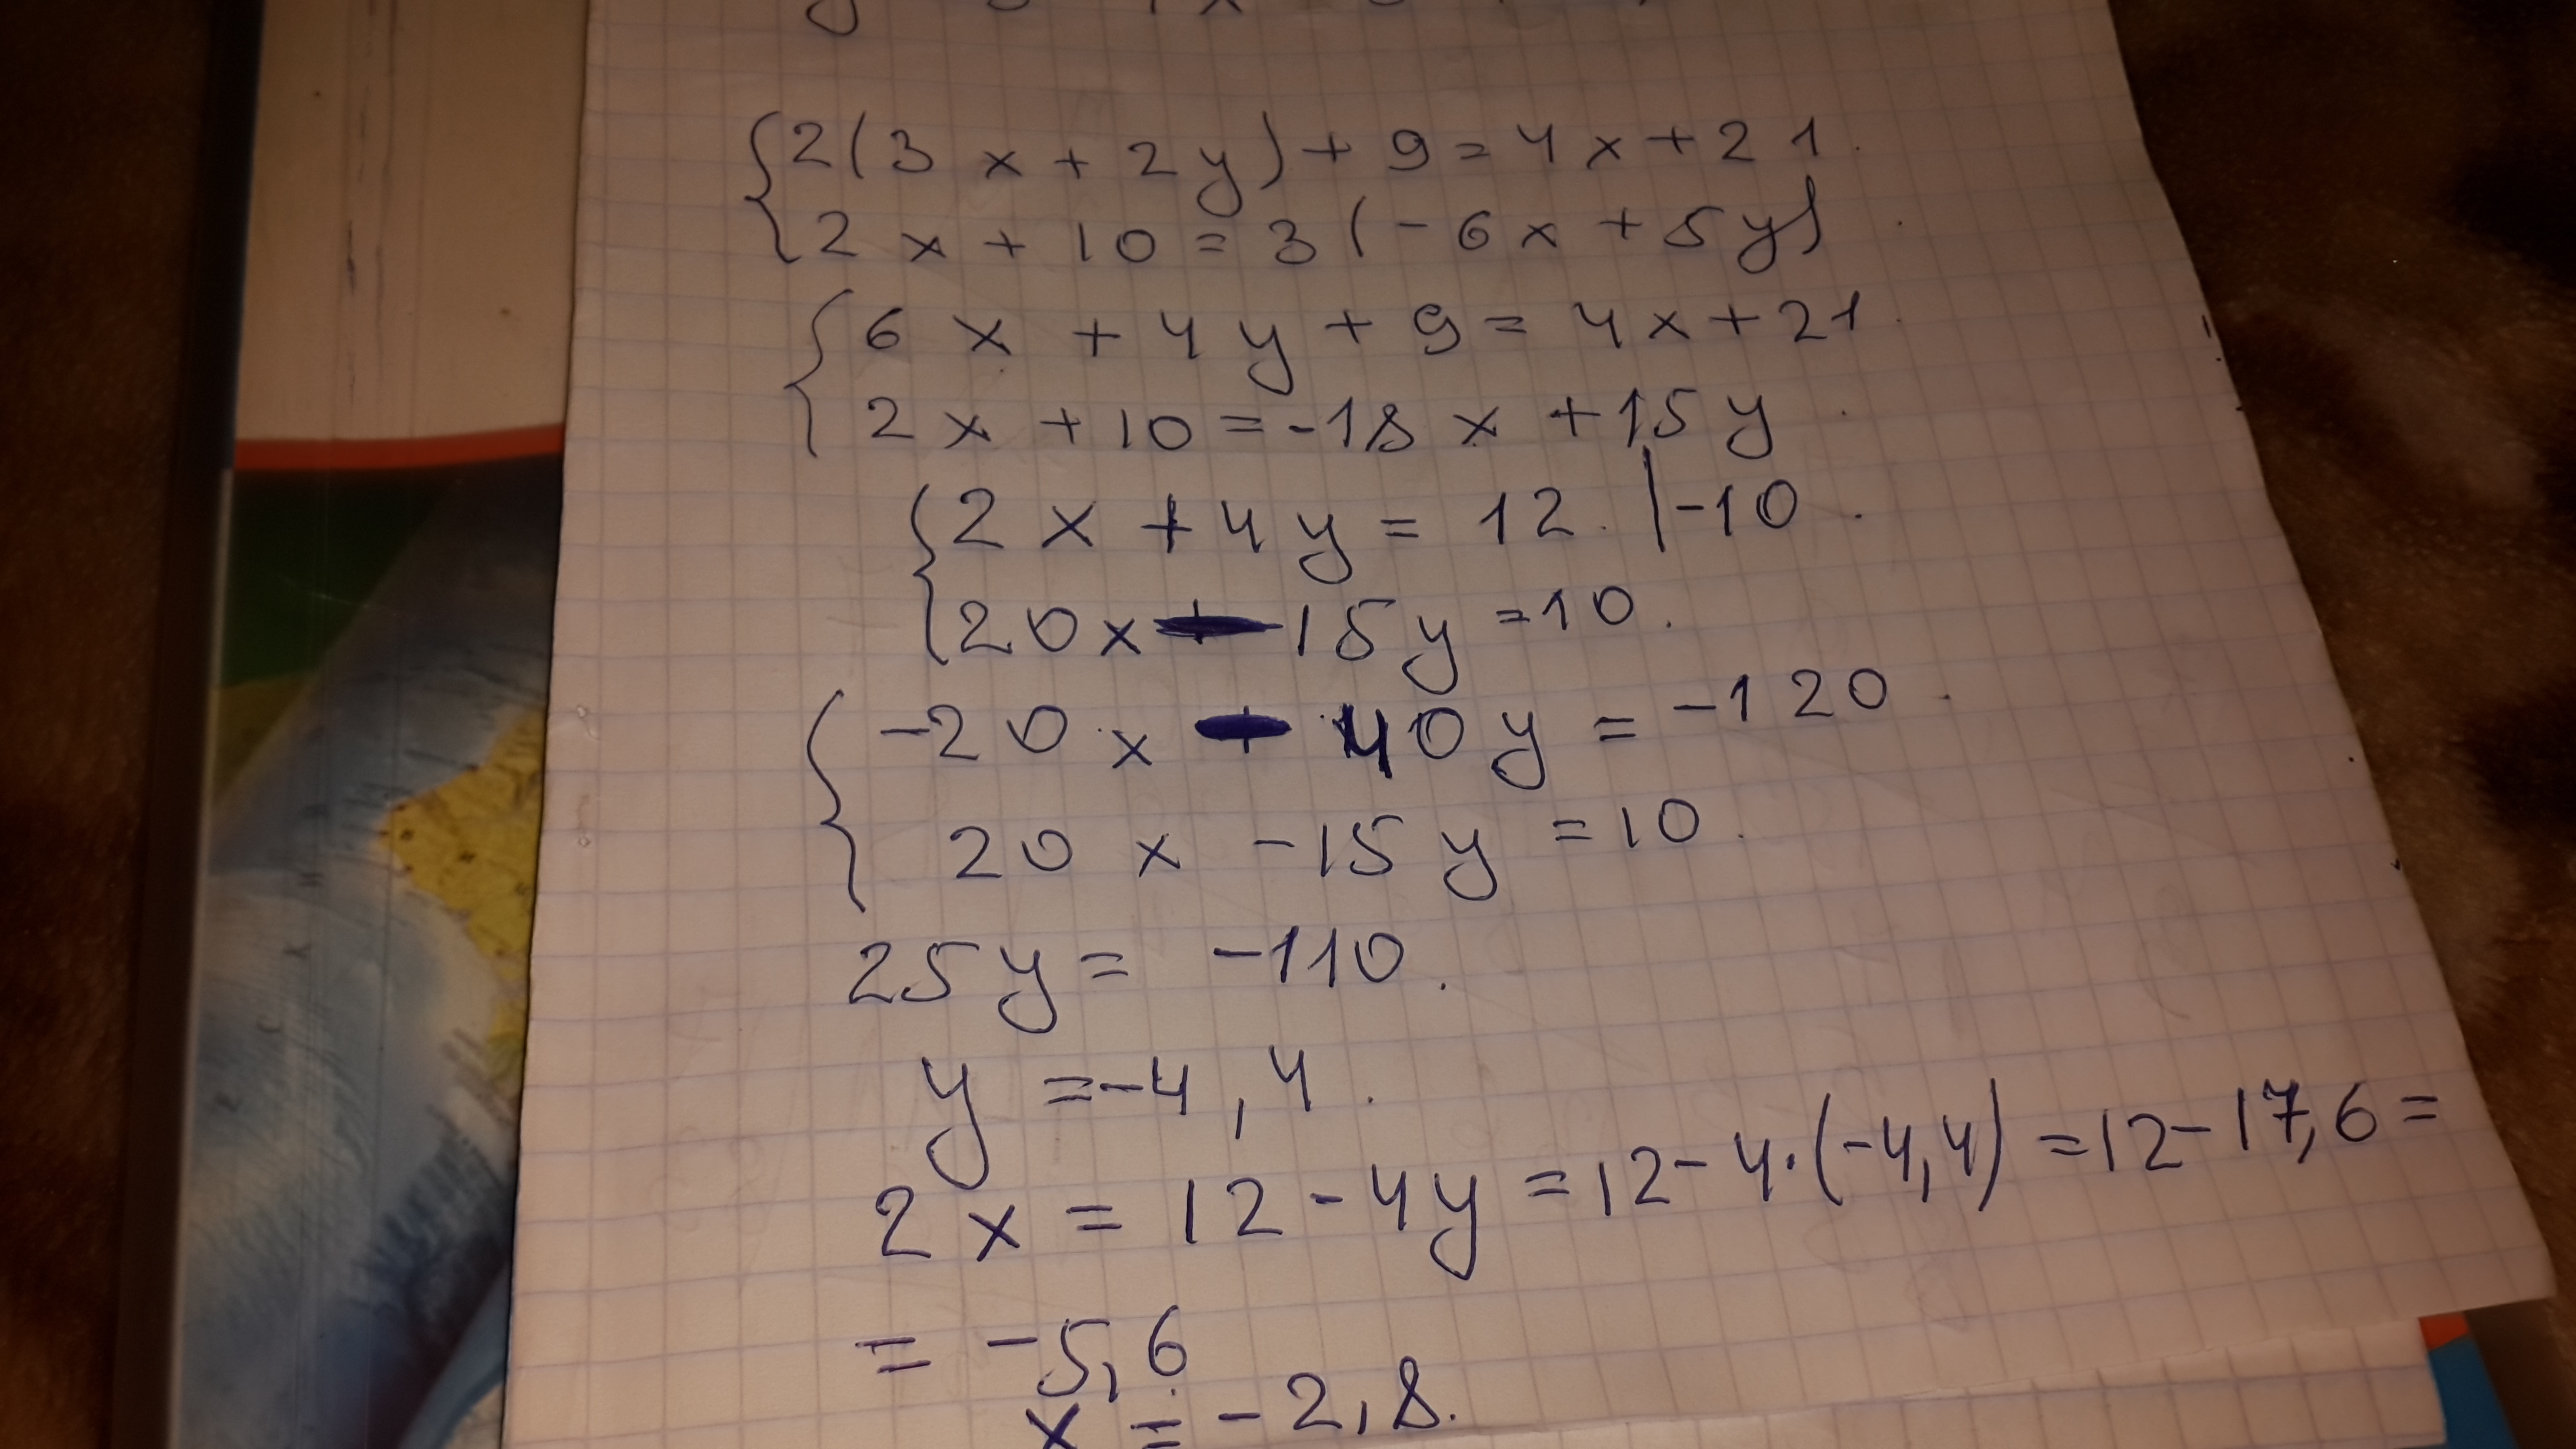 2(3x+2y)+9=4x+21.
2x+10=3(-6x+5y)
6x+4y+9=4x+21.
2x+10=-18x+15y
2x+4y=12. |-10.
20x-15y=10.
-20x-40y=-120
20x-15y=10.
25y=-110.
y=-4,4.
2x=12-4y=12-4·(-4,4)=12-17,6=
=-5,6
x=-2,8.